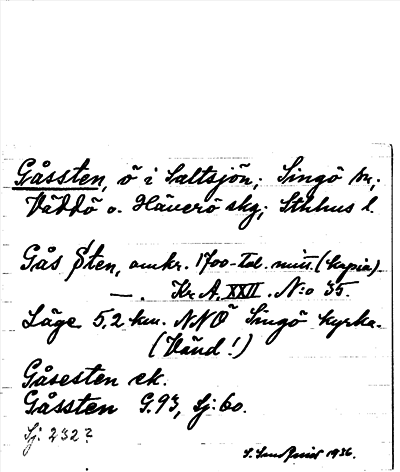 Gåssten, ö i Saltsjön; Singö sn;
Väddö o. Häverö skg; Sthlms l.
Gås Sten, omkr. 1700-tal. mitt. (kopia)
— . Kr. A. XXII. N:o 35.
Läge 5,2 km. NNÖ Singö kyrka.
(Vänd!)
Gåsesten ek.
Gåssten G. 93, Sj: 60.
Sj: 232?
1936.